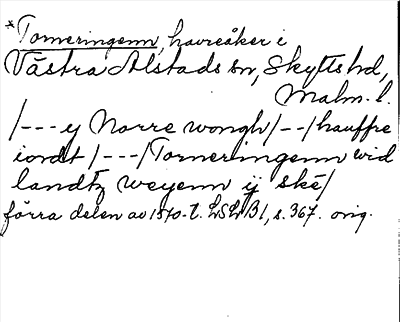 *Torneringenn, havreåker i
Västra Alstads sn, Skytts hd,
Malm. l.
/--- ij Norre wongh/--/hauffre
iordt/---/Torneringenn wid
landtz weyenn ij ské/
förra delen av 1570-t. LSLB1, s. 367. orig.